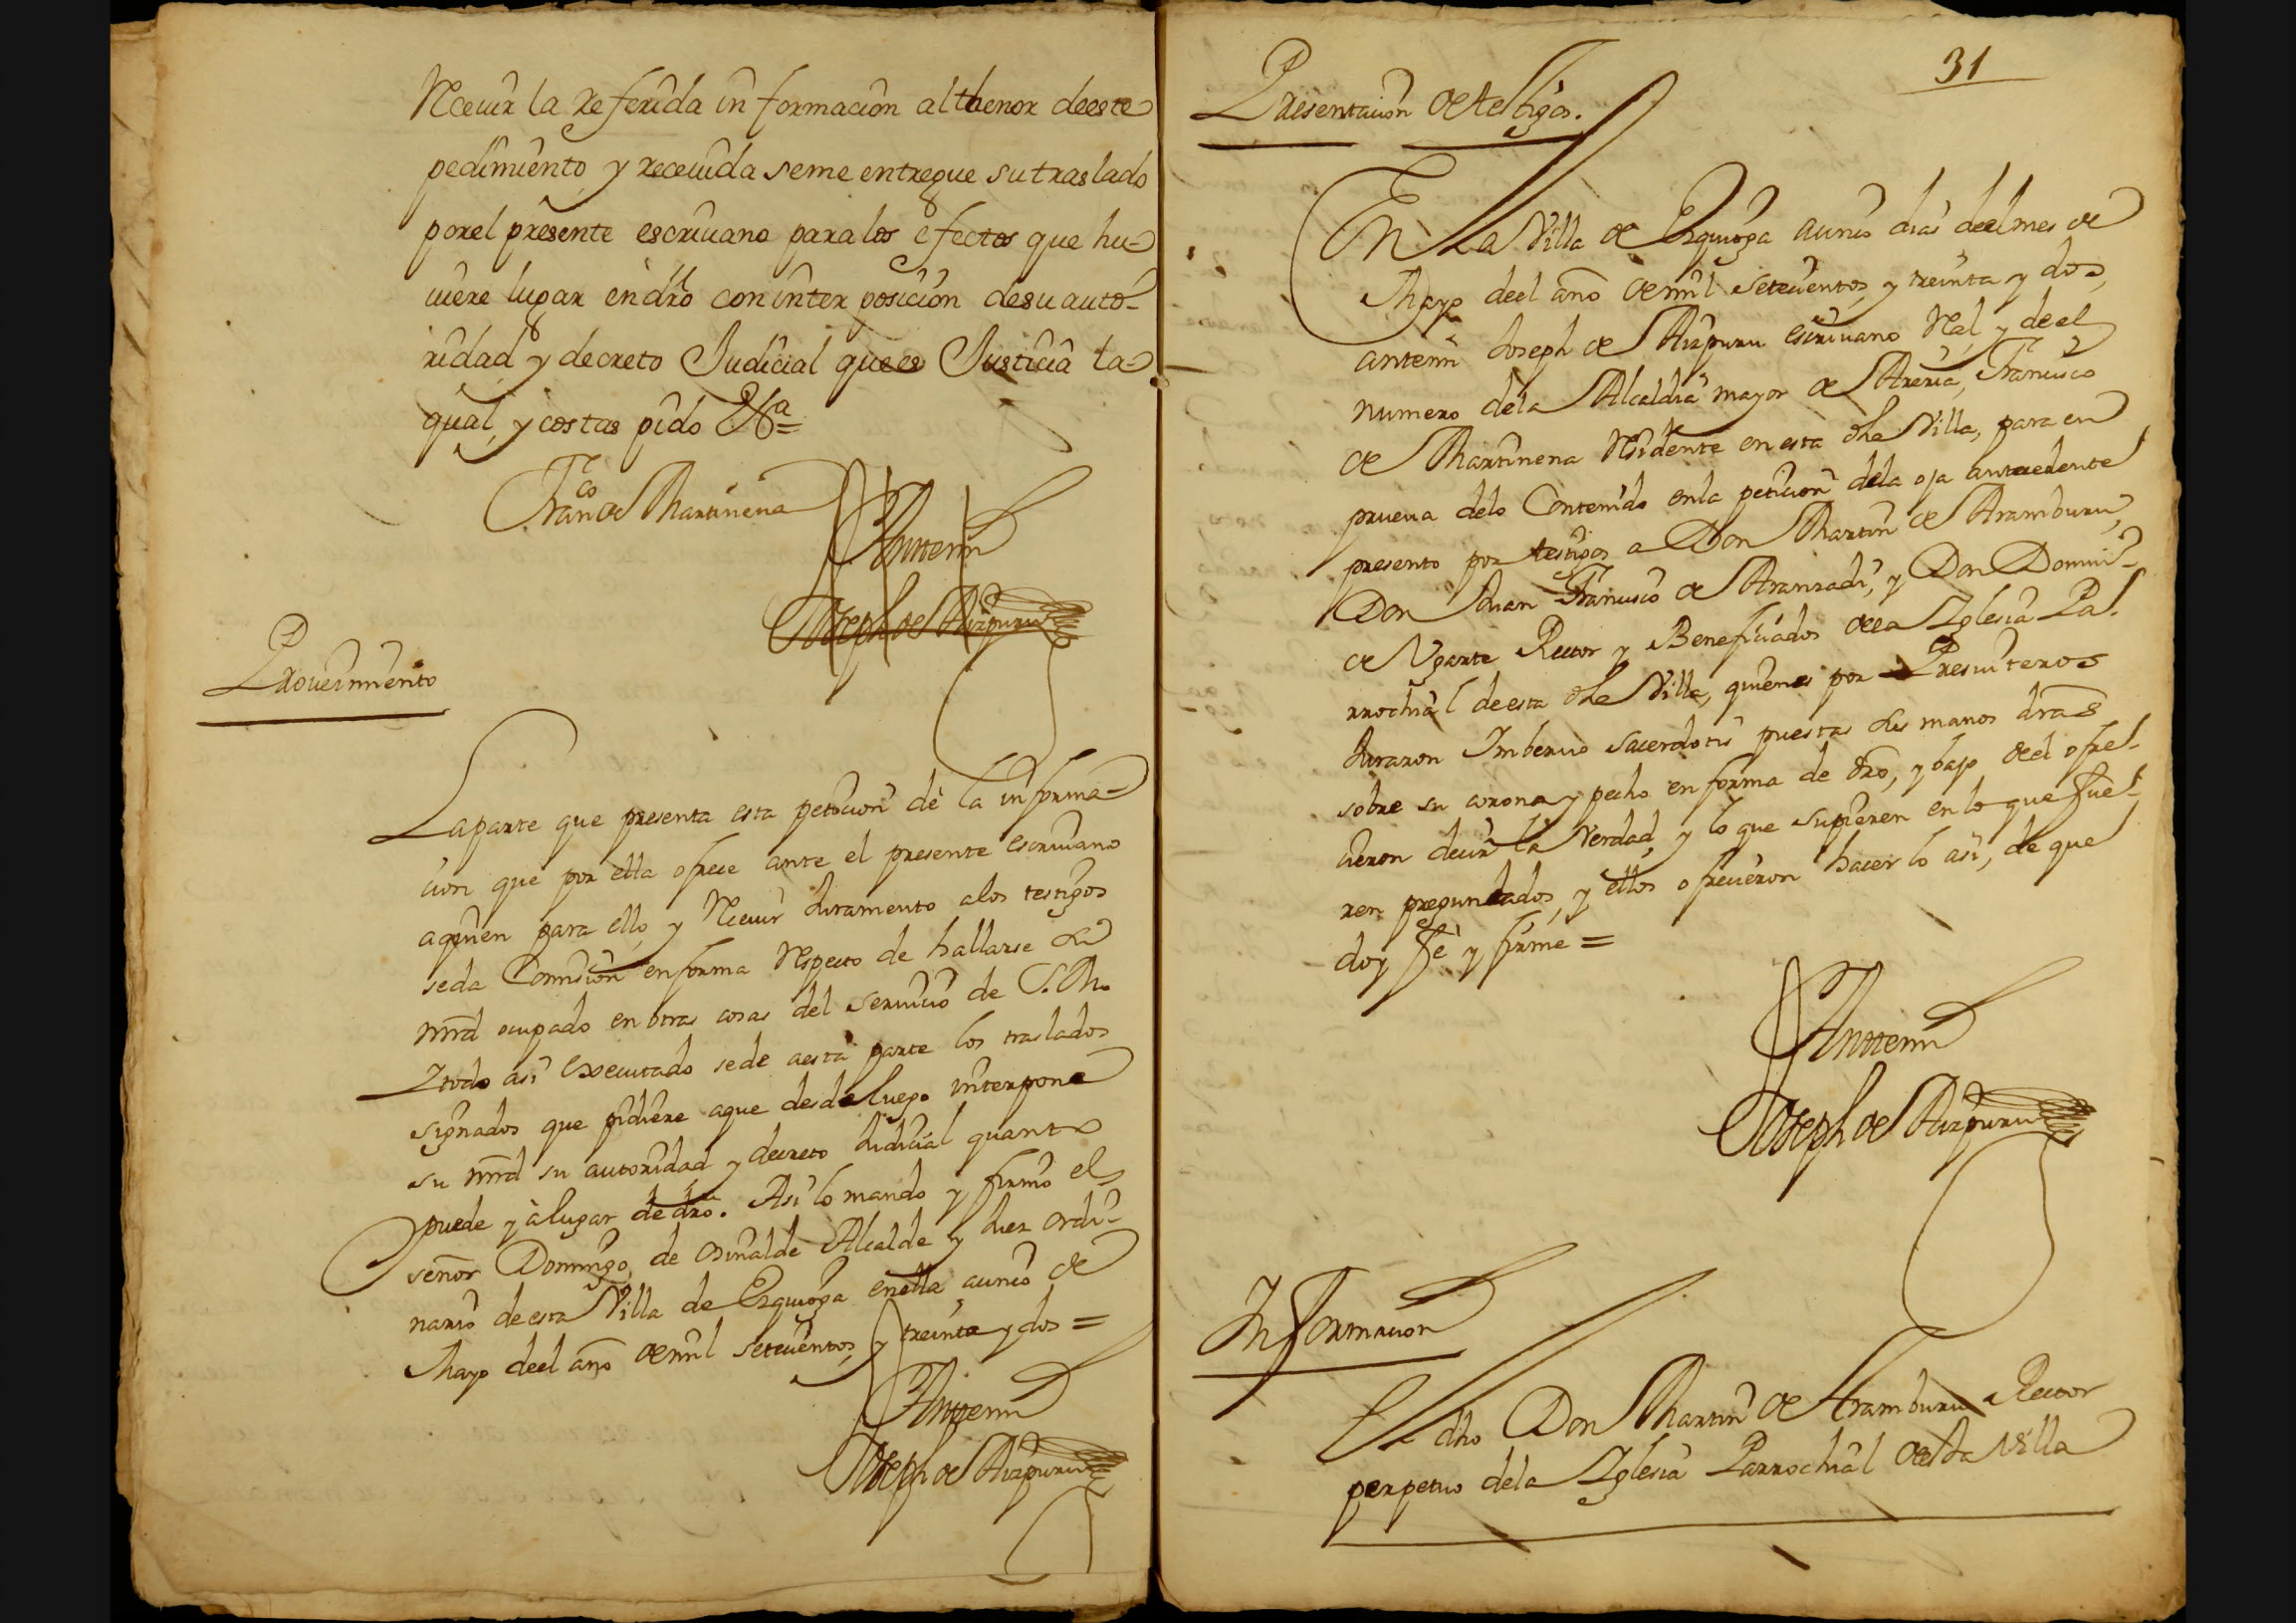 Receuir la referida informacion al thenor de este
pedimiento y receuida se me entregue su traslado
por el presente escriuano para los efectos que hu-
uiere lugar en dro con interposicion de su auto-
ridad y decreto Judicial que es Justicia la
qual, y costas pido &ª=
Franco de Martinena
Anttemi
Joseph de Aizpuru
Proueimiento
La parte que presenta esta peticion dè la informa-
cion que por ella ofrece ante el presente escriuano
a quien para ello, y Receuir Juramento a los testigos
se da Comision en forma Respecto de hallarse su
mrd ocupado en otras cosas del seruicio de S.M.
I todo asi Executado se de a esta parte los traslados
signados que pidiere a que desde luego interpone
su mrd su autoridad y decreto Judicial quanto
puede y à lugar de dro. Asi lo mando y firmo el
señor Domingo de Osinalde Alcalde y Juez ordi-
nario de esta Villa de Ezquioga en ella a cinco de
Mayo deel año de mil setecientos, y treinta y dos =
Anttemi
Joseph de Aizpuru
31
Presentacion de testigos.
En La Villa de Ezquioga a cinco dias deel mes de
Mayo deel año de mil setecientos, y treinta y dos,
antemi Joseph de Aizpuru escriuano Rel, y de el
numero de la Alcaldia mayor de Areria, Francisco
de Martinena Residente en esta dha Villa, para en
prueua delo Contenido en la peticion de la oja antecedente
presento por testigos a Don Martin de Aramburu,
Don Juan Francisco de Aranzadi, y Don Domin-
de Ugarte Rector y Beneficiados de la Iglesia Pa-
rrochial de esta dha Villa, quienes por Presuiteros
Juraron Imberuo sacerdotis puestas sus manos dras
sobre su corona y pecho en forma de dro, y bajo deel ofre-
cieron decir la Verdad, y lo que supieren en lo que fue-
ren preguntados, y ellos ofrecieron hacer lo asi, de que
doy fè y firmè =
Anttemi
Joseph de Aizpuru
Informacion
El dho Don Martin de Aramburu Rector
perpetuo de la Iglesia Parrochial de esta Villa